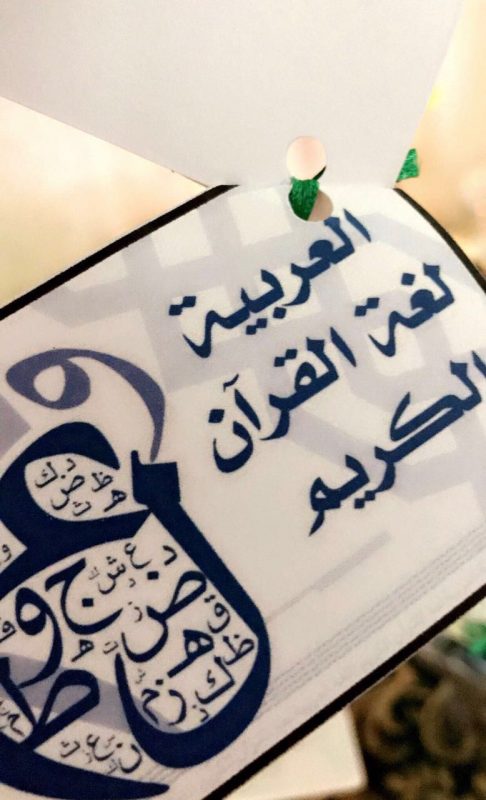 العربية
لغة القرآن
الكريم